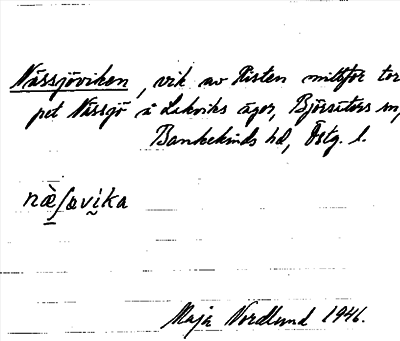 Nässjöviken, vik av Risten mittför tor
pet Nässjö å Lakviks ägor, Björsäters sn,
Bankekinds hd, Östg. l.
næ̀ʃavika
Maja Nordlund 1946.